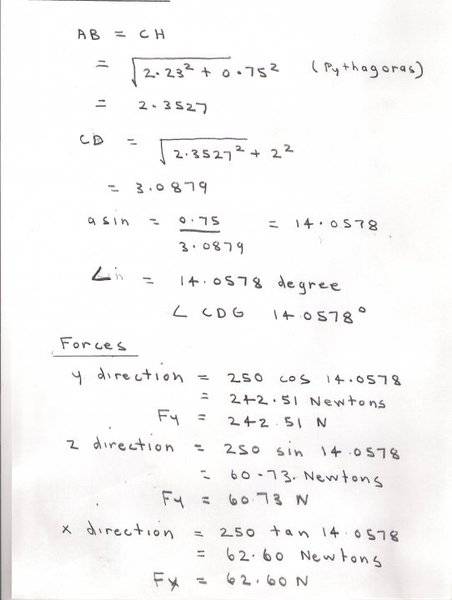 AB = CH
= √2.23² + 0.75² (Pythagoras)
= 2.3527
CD = √2.3527² + 2²
= 3.0879
asin = 0.75 = 14.0578
3.0879
∠ = 14.0578 degree
∠ CDG 14.0578°
Forces
y direction = 250 cos 14.0578
= 242.51 Newtons
Fy = 242.51 N
z direction = 250 sin 14.0578
= 60.73. Newtons
Fy = 60.73 N
x direction = 250 tan 14.0578
= 62.60 Newtons
Fx = 62.60 N